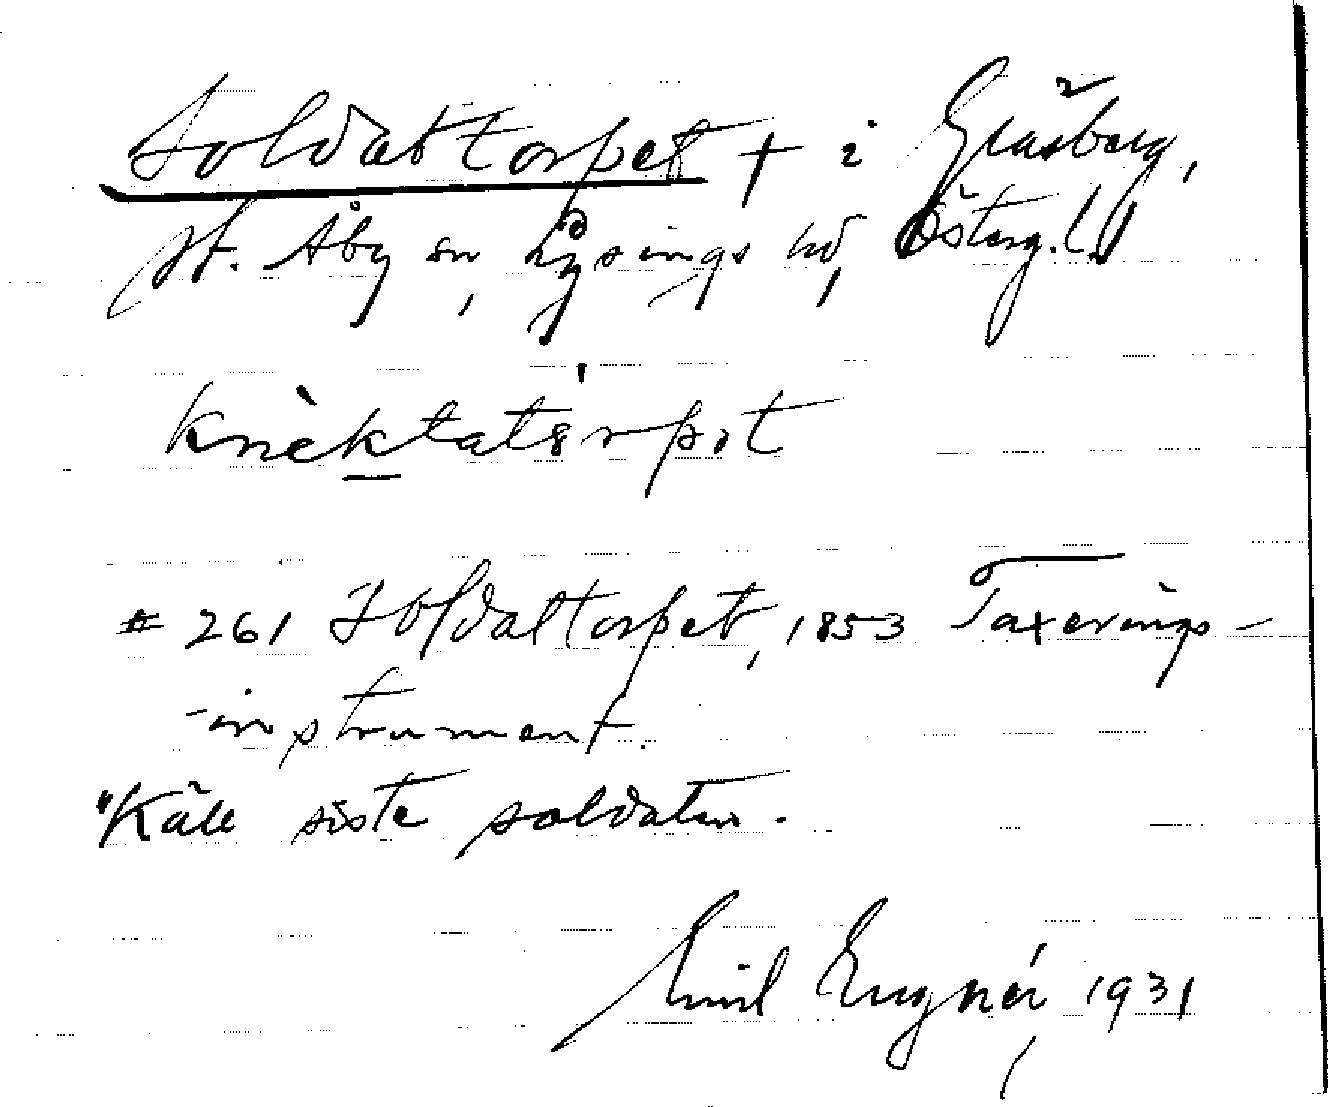 Soldattorpet † i Gråsberg,
St. Åby sn, Lysings hd, Österg.l.
knèktatŏrpıt
# 261 Soldattorpet, 1853 Taxerings-
-instrument.
"Käll siste soldaten.
Emil Eugnér, 1931